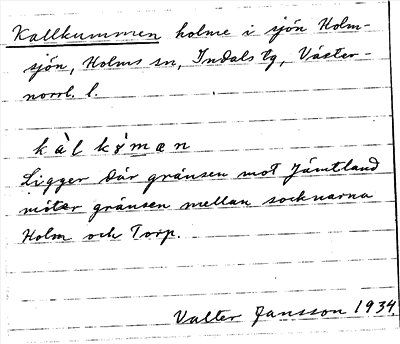 Kallkummen holme i sjön Holm-
sjön, Holms sn, Indals tg, Väster-
norrl. l.
kàlkỳmæn
Ligger där gränsen mot Jämtland
möter gränsen mellan socknarna
Holm och Torp.
Valter Jansson 1934.